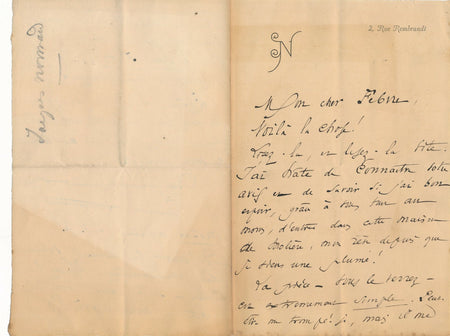 Jacques Normand
N
2, Rue Rembrandt
Mon cher Febvre,
Voilà la chose!
Lisez-la, et lisez-la vite.
J'ai hâte de connaître votre
avis et de savoir si j'ai bon
espoir, grâce à vous tout au
moins, d'entrer dans cette maison
de Molière, mon rêve depuis que
je tiens une plume!
La pièce – vous le verrez –
est extrêmement simple. Peut-
être me trompé-je, mais il me